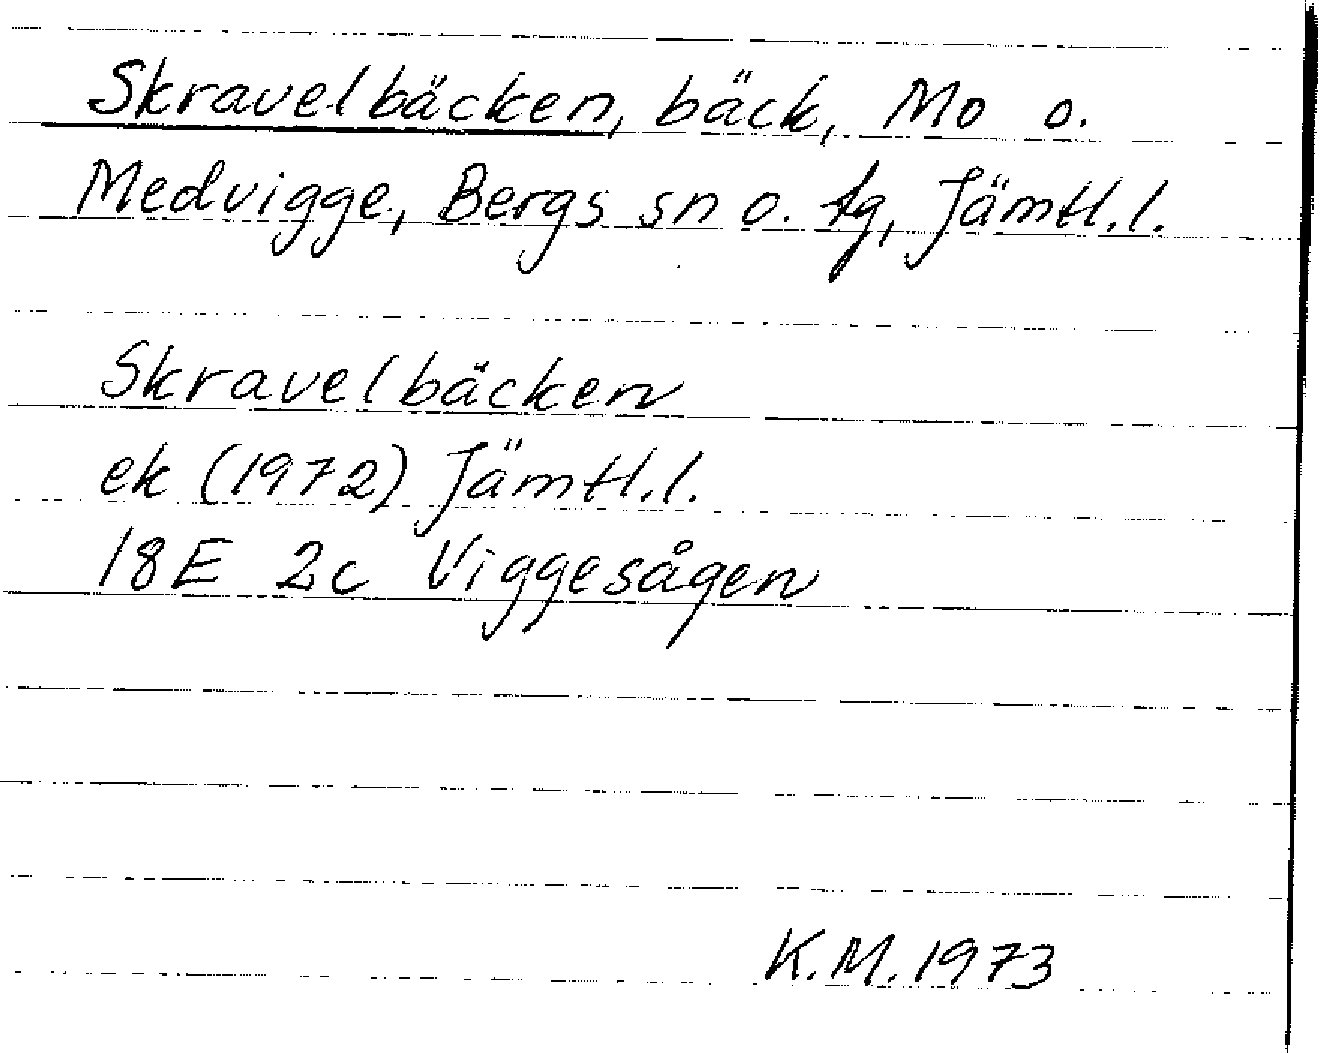 Skravelbäcken, bäck, Mo o.
Medvigge, Bergs sn o. tg, Jämtl.l.
Skravelbäcken
ek (1972) Jämtl.l.
18E 2c Viggesågen
K.M. 1973